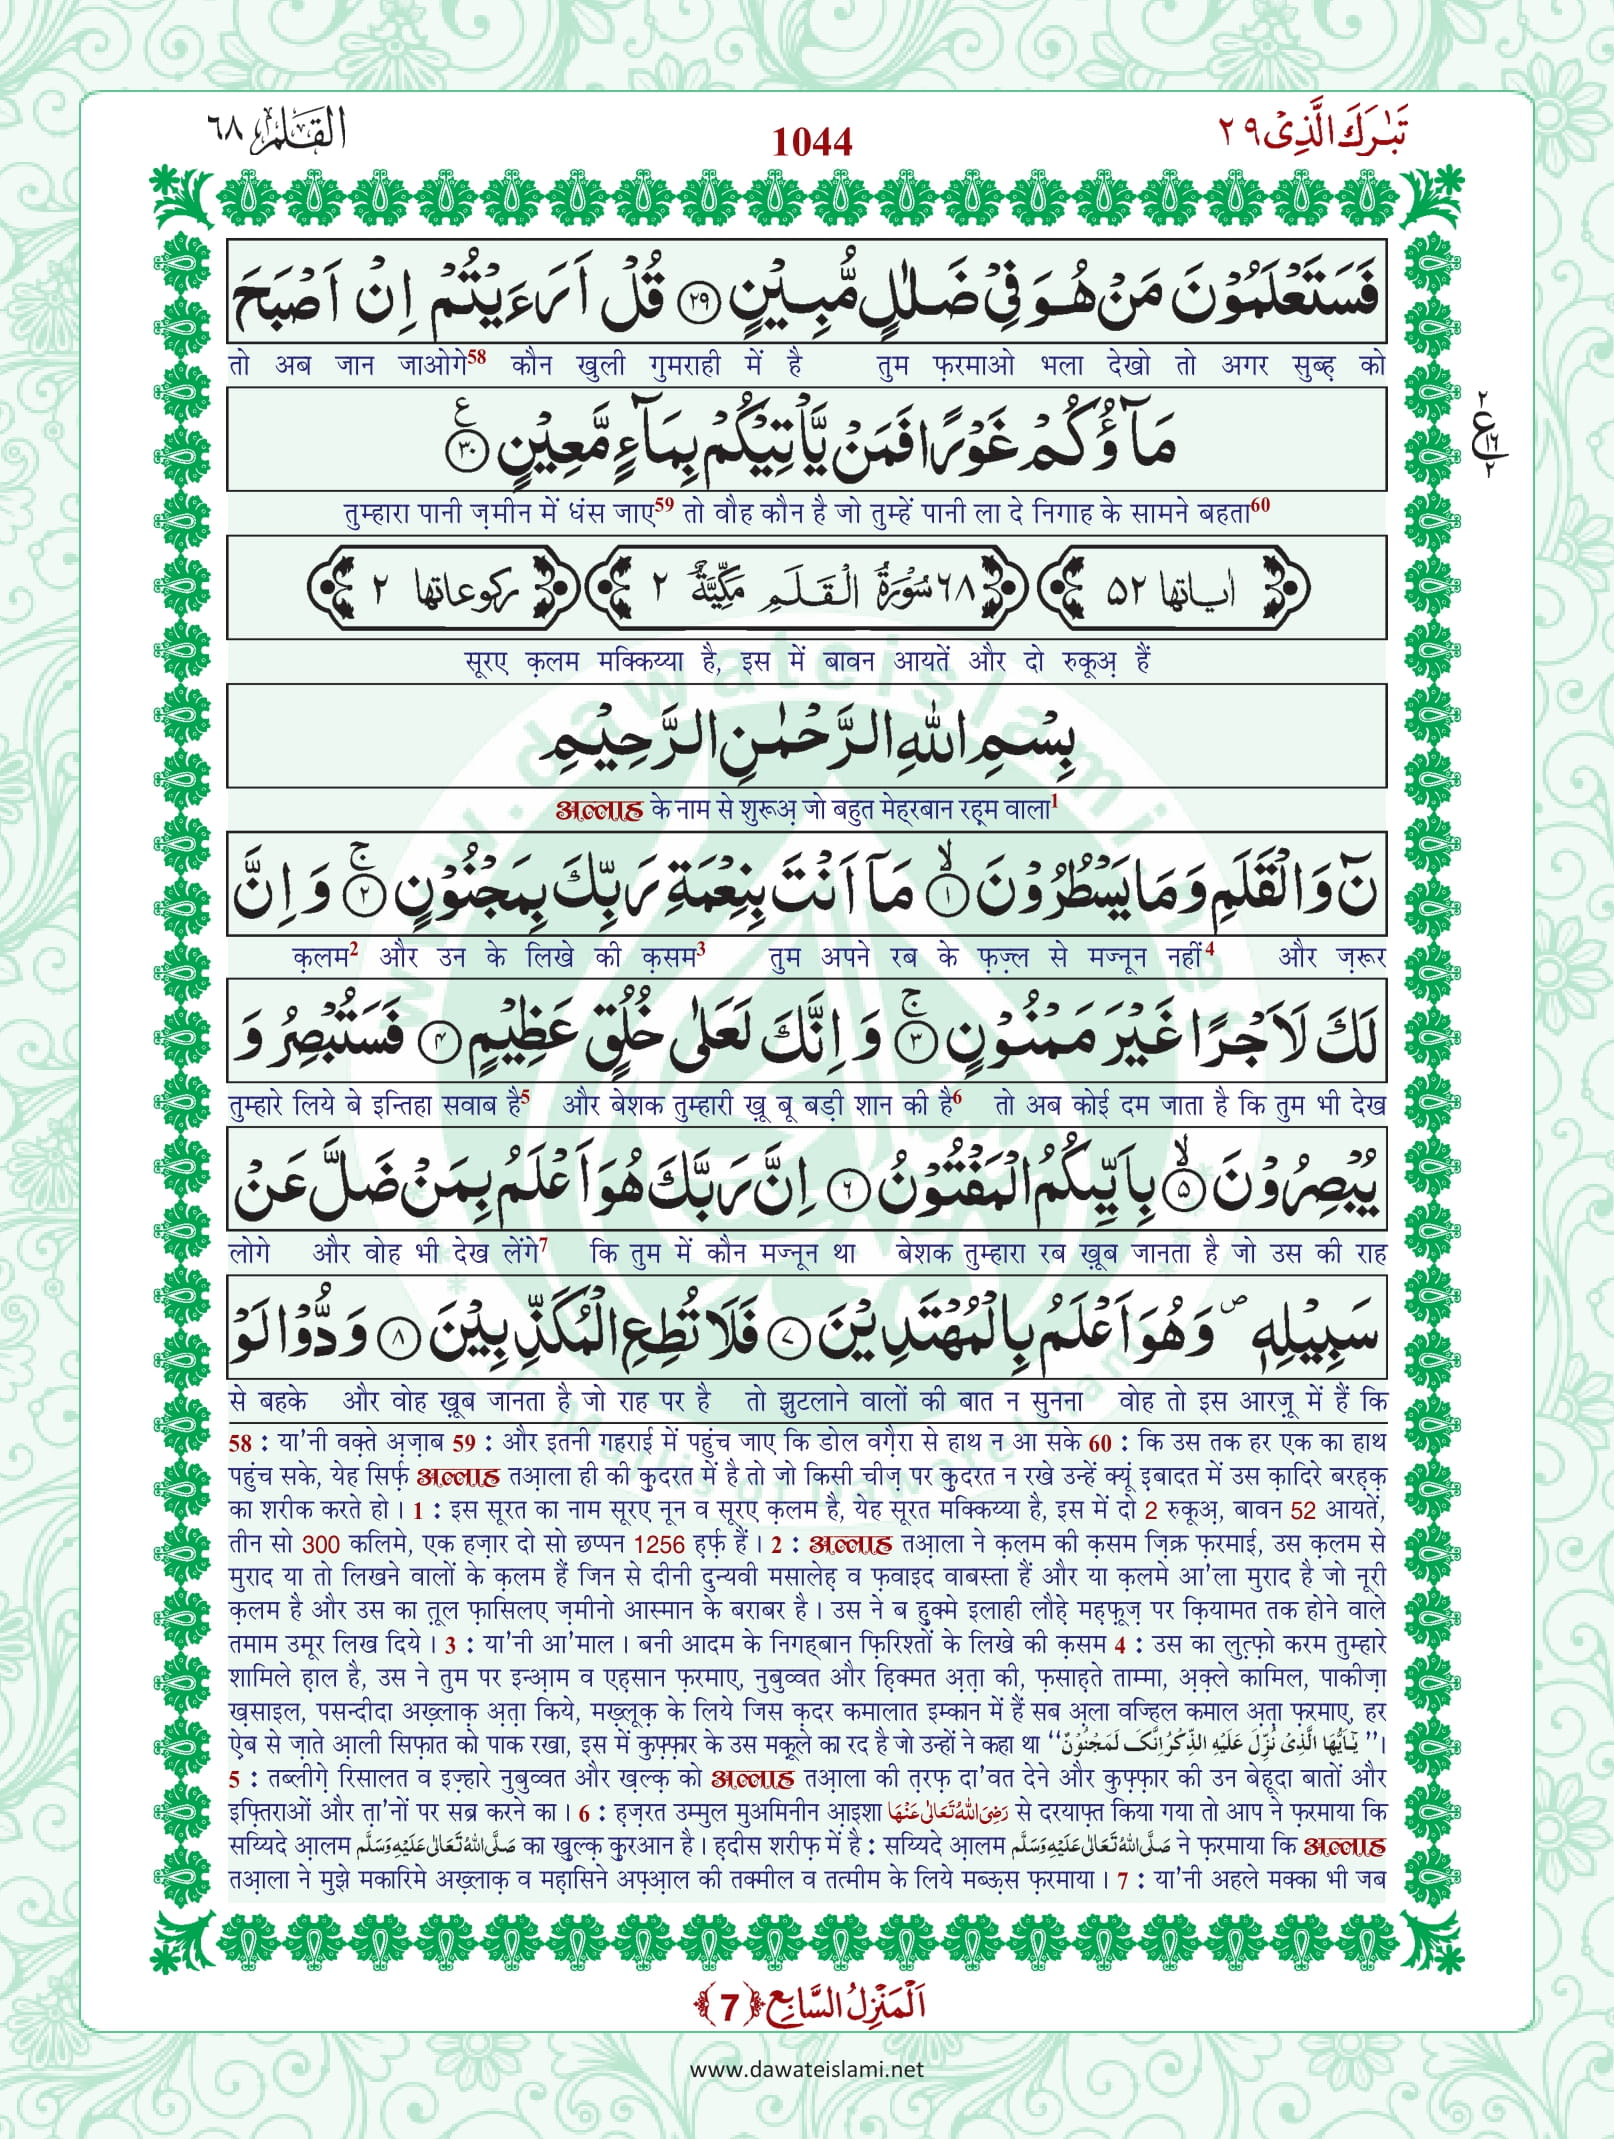 القلم ٦٨
1044
تَبٰرَكَ الَّذِیْ ٢٩
فَسَتَعْلَمُوْنَ مَنْ هُوَ فِیْ ضَلٰلٍ مُّبِیْنٍ ﴿٢٩﴾ قُلْ اَرَءَیْتُمْ اِنْ اَصْبَحَ
तो अब जान जाओगे58 कौन खुली गुमराही में है तुम फ़रमाओ भला देखो तो अगर सुब्ह़ को
مَآؤُكُمْ غَوْرًا فَمَنْ یَّاْتِیْكُمْ بِمَآءٍ مَّعِیْنٍ ﴿٣٠﴾ ع
٢ ع ١٦ ٢
तुम्हारा पानी ज़मीन में धंस जाए59 तो वोह कौन है जो तुम्हें पानी ला दे निगाह के सामने बहता60
اٰیاتها ٥٢ ٦٨ سُوْرَةُ الْقَلَمِ مَكِّیَّةٌ ٢ ركوعاتها ٢
सूरए क़लम मक्किय्या है, इस में बावन आयतें और दो रुकूअ़ हैं
بِسْمِ اللّٰهِ الرَّحْمٰنِ الرَّحِیْمِ
अल्लाह के नाम से शुरूअ़ जो बहुत मेह्रबान रह़्म वाला1
نٓ وَ الْقَلَمِ وَ مَا یَسْطُرُوْنَ ۙ﴿١﴾ مَاۤ اَنْتَ بِنِعْمَةِ رَبِّكَ بِمَجْنُوْنٍ ۚ﴿٢﴾ وَ اِنَّ
क़लम2 और उन के लिखे की क़सम3 तुम अपने रब के फ़ज़्ल से मज्नून नहीं4 और ज़रूर
لَكَ لَاَجْرًا غَیْرَ مَمْنُوْنٍ ۚ﴿٣﴾ وَ اِنَّكَ لَعَلٰى خُلُقٍ عَظِیْمٍ ﴿٤﴾ فَسَتُبْصِرُ وَ
तुम्हारे लिये बे इन्तिहा सवाब है5 और बेशक तुम्हारी ख़ू बू बड़ी शान की है6 तो अब कोई दम जाता है कि तुम भी देख
یُبْصِرُوْنَ ۙ﴿٥﴾ بِاَیِّىكُمُ الْمَفْتُوْنُ ﴿٦﴾ اِنَّ رَبَّكَ هُوَ اَعْلَمُ بِمَنْ ضَلَّ عَنْ
लोगे और वोह भी देख लेंगे7 कि तुम में कौन मज्नून था बेशक तुम्हारा रब ख़ूब जानता है जो उस की राह
سَبِیْلِهٖ ۪ وَ هُوَ اَعْلَمُ بِالْمُهْتَدِیْنَ ﴿٧﴾ فَلَا تُطِعِ الْمُكَذِّبِیْنَ ﴿٨﴾ وَدُّوْا لَوْ
से बहके और वोह ख़ूब जानता है जो राह पर है तो झुटलाने वालों की बात न सुनना वोह तो इस आरज़ू में हैं कि
58 : या'नी वक़्ते अ़ज़ाब 59 : और इतनी गहराई में पहुंच जाए कि डोल वग़ैरा से हाथ न आ सके 60 : कि उस तक हर एक का हाथ
पहुंच सके, येह सिर्फ़ अल्लाह तआ़ला ही की क़ुदरत में है तो जो किसी चीज़ पर क़ुदरत न रखे उन्हें क्यूं इ़बादत में उस क़ादिरे बरह़क़
का शरीक करते हो । 1 : इस सूरत का नाम सूरए नून व सूरए क़लम है, येह सूरत मक्किय्या है, इस में दो 2 रुकूअ़, बावन 52 आयतें,
तीन सो 300 कलिमे, एक हज़ार दो सो छप्पन 1256 ह़र्फ़ हैं । 2 : अल्लाह तआ़ला ने क़लम की क़सम ज़िक्र फ़रमाई, उस क़लम से
मुराद या तो लिखने वालों के क़लम हैं जिन से दीनी दुन्यवी मसालेह़ व फ़वाइद वाबस्ता हैं और या क़लमे आ'ला मुराद है जो नूरी
क़लम है और उस का त़ूल फ़ासिलए ज़मीनो आस्मान के बराबर है । उस ने ब हु़क्मे इलाही लौह़े मह़फ़ूज़ पर क़ियामत तक होने वाले
तमाम उमूर लिख दिये । 3 : या'नी आ'माल । बनी आदम के निगह्बान फ़िरिश्तों के लिखे की क़सम 4 : उस का लुत़्फ़ो करम तुम्हारे
शामिले ह़ाल है, उस ने तुम पर इन्आ़म व एह़सान फ़रमाए, नुबुव्वत और हि़क्मत अ़त़ा की, फ़साह़ते ताम्मा, अ़क़्ले कामिल, पाकीज़ा
ख़साइल, पसन्दीदा अख़्लाक़ अ़त़ा किये, मख़्लूक़ के लिये जिस क़दर कमालात इम्कान में हैं सब अ़ला वज्हिल कमाल अ़त़ा फ़रमाए, हर
ऐ़ब से ज़ाते आ़ली सिफ़ात को पाक रखा, इस में कुफ़्फ़ार के उस मक़ूले का रद है जो उन्हों ने कहा था ‘‘یٰۤاَیُّهَا الَّذِیْ نُزِّلَ عَلَیْهِ الذِّكْرُ اِنَّكَ لَمَجْنُوْنٌ’’ ।
5 : तब्लीग़े रिसालत व इज़्हारे नुबुव्वत और ख़ल्क़ को अल्लाह तआ़ला की त़रफ़ दा'वत देने और कुफ़्फ़ार की उन बेहूदा बातों और
इफ़्तिराओं और त़ा'नों पर सब्र करने का । 6 : ह़ज़रत उम्मुल मुअमिनीन आ़इशा رَضِیَ اللهُ تَعَالٰی عَنْهَا से दरयाफ़्त किया गया तो आप ने फ़रमाया कि
सय्यिदे आ़लम صَلَّی اللهُ تَعَالٰی عَلَیْهِ وَسَلَّم का ख़ुल्क़ क़ुरआन है । ह़दीस शरीफ़ में है : सय्यिदे आ़लम صَلَّی اللهُ تَعَالٰی عَلَیْهِ وَسَلَّم ने फ़रमाया कि अल्लाह
तआ़ला ने मुझे मकारिमे अख़्लाक़ व मह़ासिने अफ़्आ़ल की तक्मील व तत्मीम के लिये मब्ऊ़स फ़रमाया । 7 : या'नी अहले मक्का भी जब
اَلْمَنْزِلُ السَّابِع ﴿7﴾
www.dawateislami.net